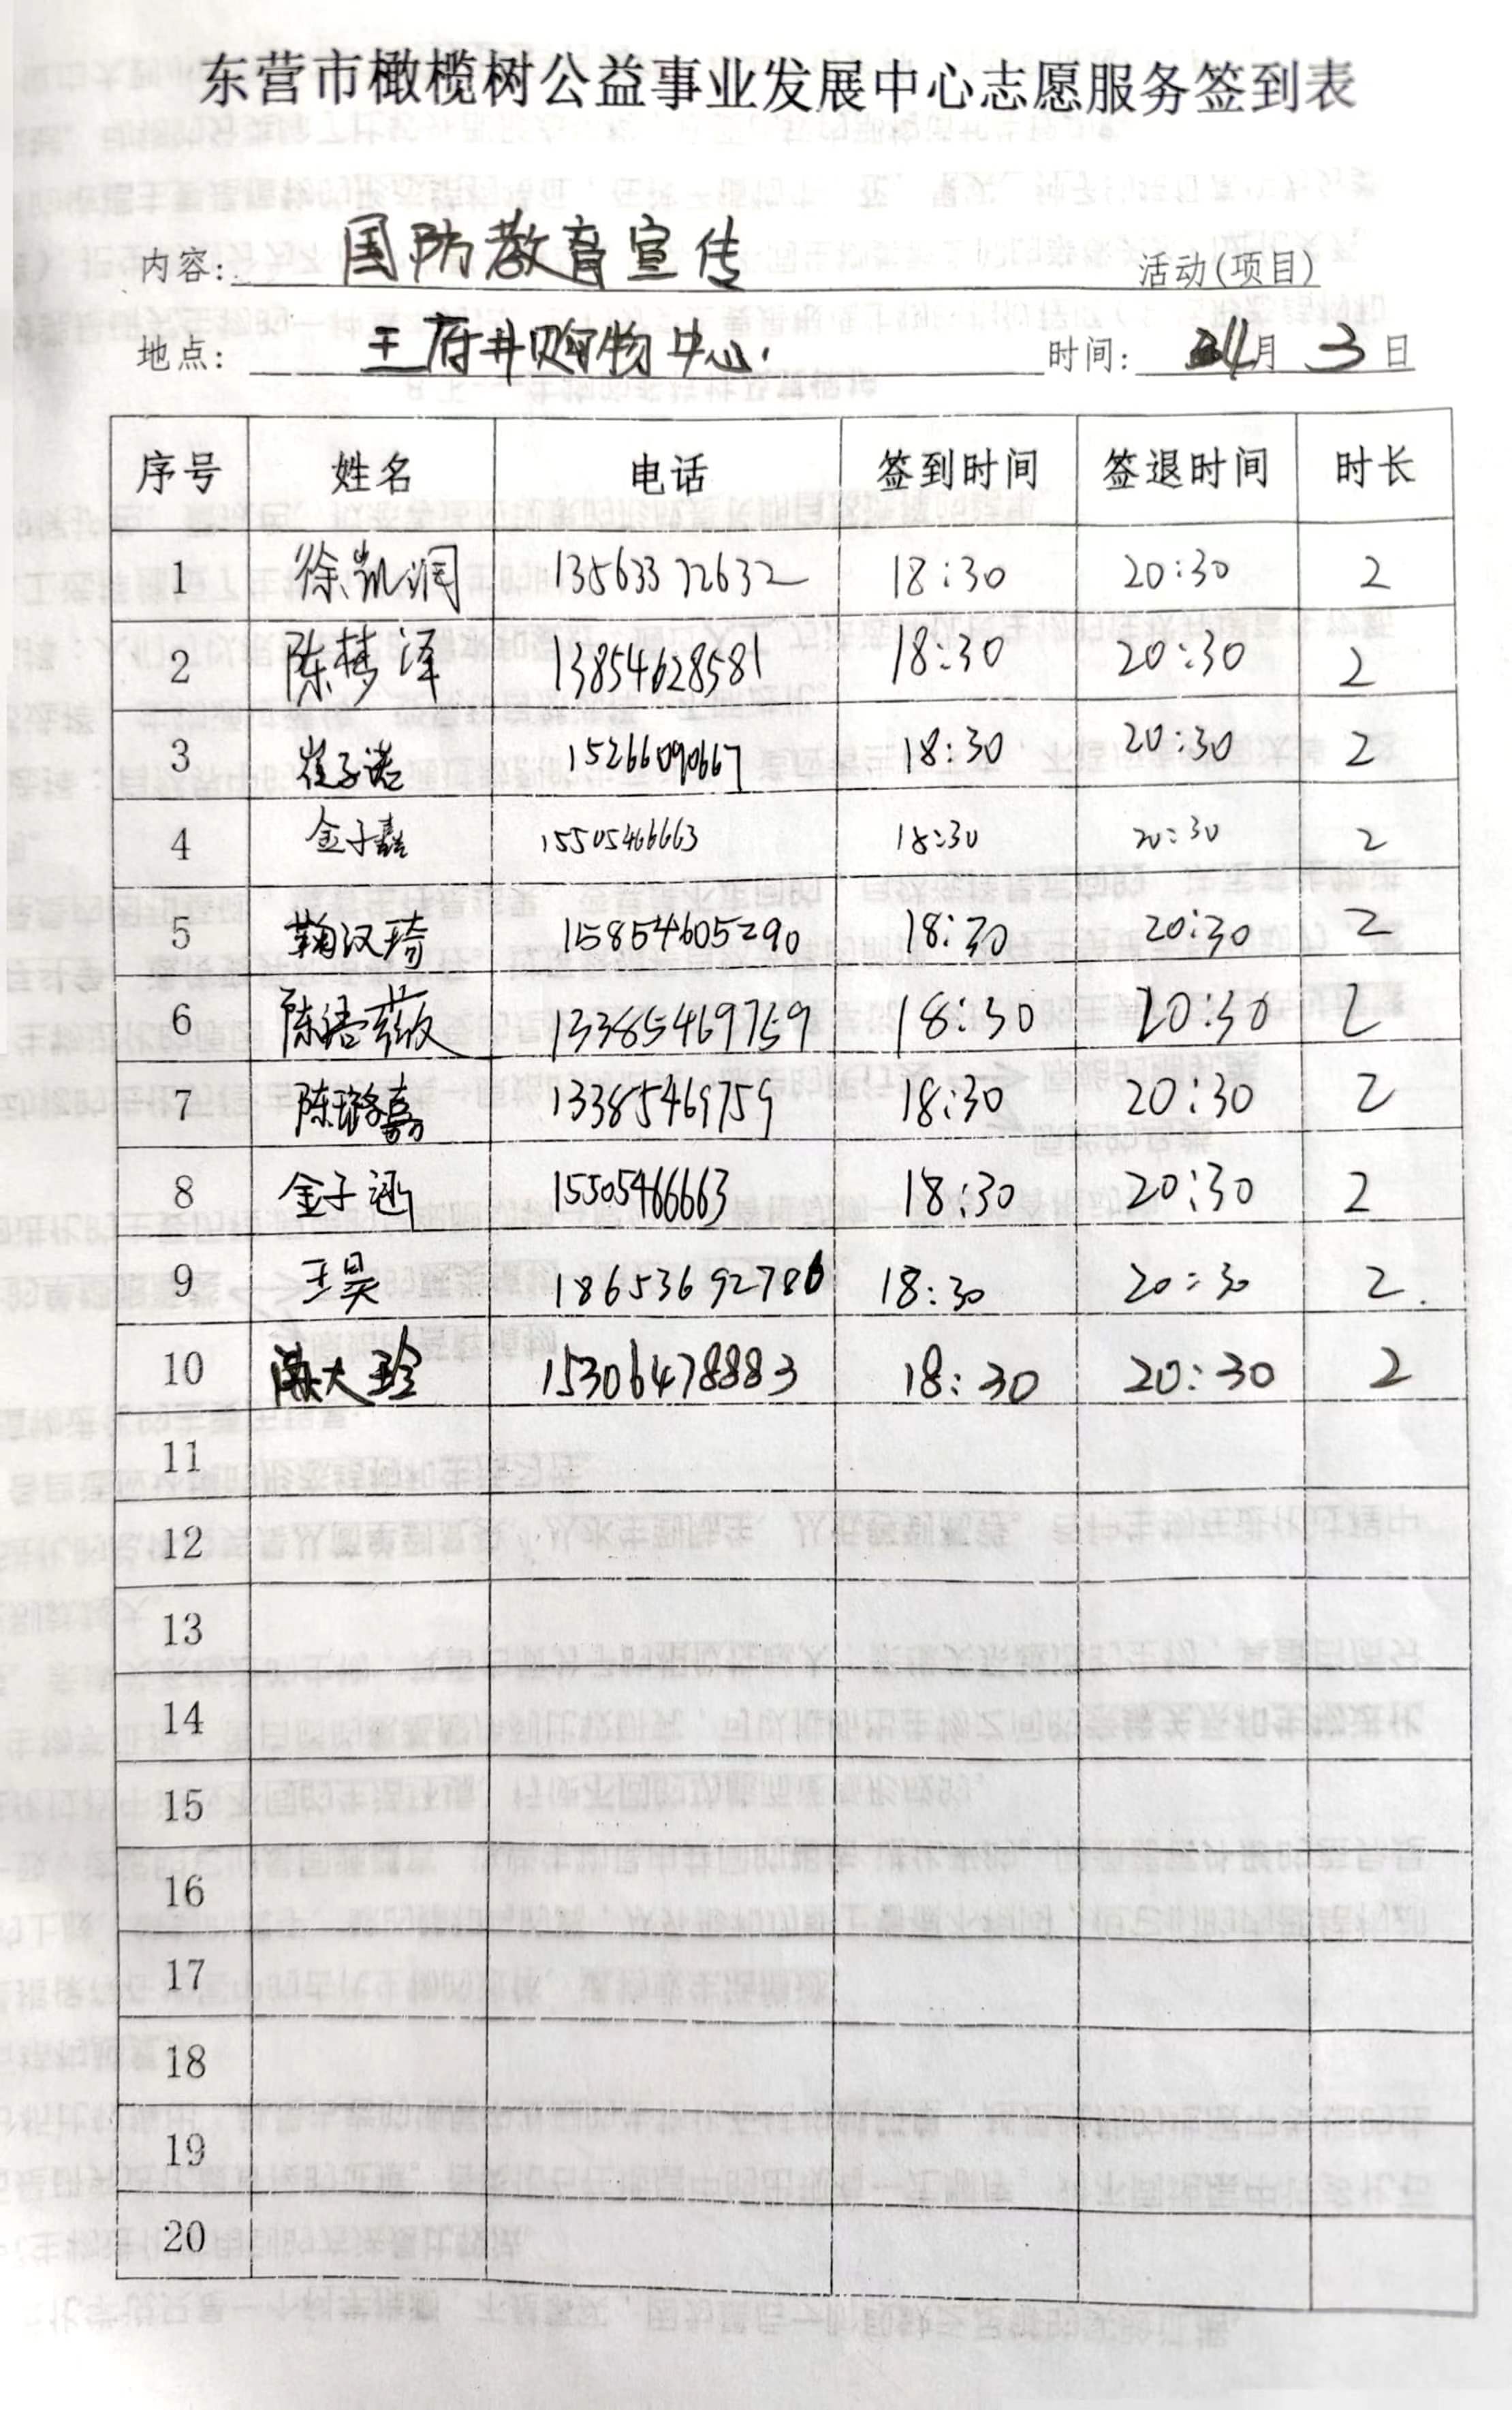 东营市橄榄树公益事业发展中心志愿服务签到表
内容: 国防教育宣传 活动(项目)
地点: 王府井购物中心. 时间: 月 3 日
序号 姓名 电话 签到时间 签退时间 时长
1 徐凯润 13563372632 18:30 20:30 2
2 陈梦泽 13854628581 18:30 20:30 2
3 崔子诺 15266090667 18:30 20:30 2
4 金子 15505466663 18:30 20:30 2
5 鞠汉琦 115854605290 18:30 20:30 2
6 陈语薇 13385469759 18:30 20:30 2
7 陈璐嘉 13385469759 18:30 20:30 2
8 金子涵 15505466663 18:30 20:30 2
9 王昊 18653692786 18:30 20:30 2.
10 大珍 15306478883 18:30 20:30 2
11
12
13
14
15
16
17
18
19
20